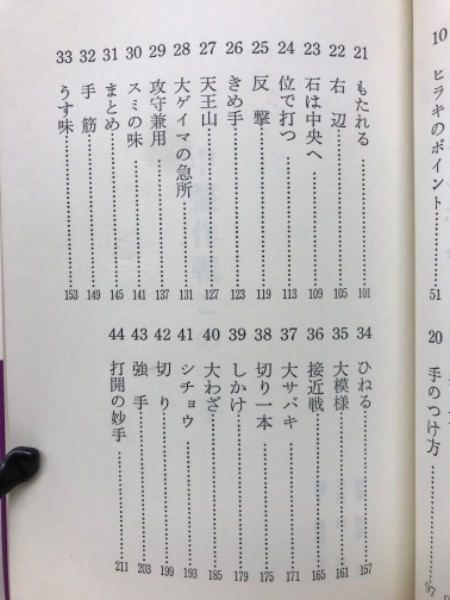 10 ヒラキのポイント 51
20 手のつけ方
21 もたれる 101
22 右辺 105
23 石は中央へ 109
24 位で打つ 113
25 反撃 119
26 きめ手 123
27 天王山 127
28 大ゲイマの急所 131
29 攻守兼用 137
30 スミの味 141
31 まとめ 145
32 手筋 149
33 うす味 153
34 ひねる 157
35 大模様 161
36 接近戦 165
37 大サバキ 171
38 切り一本 175
39 しかけ 179
40 大わざ 185
41 シチョウ 193
42 切り 199
43 強手 203
44 打開の妙手 211